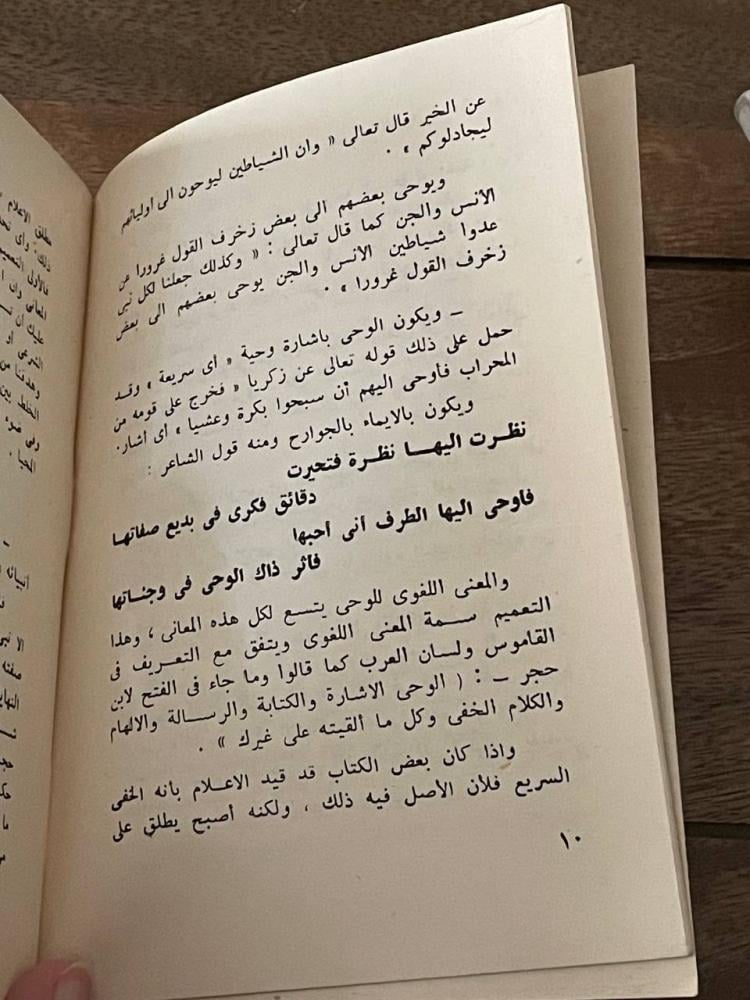 عن الخير قال تعالى « وان الشياطين ليوحون الى أوليائهم
ليجادلوكم » .
ويوحى بعضهم الى بعض زخرف القول غرورا عن
الأنس والجن كما قال تعالى : « وكذلك جعلنا لكل نبى
عدوا شياطين الأنس والجن يوحى بعضهم الى بعض
زخرف القول غرورا » .
ـ ويكون الوحى باشارة وحية « أى سريعة » وقد
حمل على ذلك قوله تعالى عن زكريا « فخرج على قومه من
المحراب فأوحى اليهم أن سبحوا بكرة وعشيا » أى أشار.
ويكون بالايماء بالجوارح ومنه قول الشاعر :
نظرت اليها نظرة فتحيرت
دقائق فكرى فى بديع صفاتها
فأوحى اليها الطرف أنى أحبها
فأثر ذاك الوحى فى وجناتها
والمعنى اللغوى للوحى يتسع لكل هذه المعانى ، وهذا
التعميم سمة المعنى اللغوى ويتفق مع التعريف فى
القاموس ولسان العرب كما قالوا وما جاء فى الفتح لابن
حجر ـ : ( الوحى الاشارة والكتابة والرسالة والالهام
والكلام الخفى وكل ما ألقيته على غيرك » .
واذا كان بعض الكتاب قد قيد الاعلام بأنه الخفى
السريع فلأن الأصل فيه ذلك ، ولكنه أصبح يطلق على
١٠
مطلق الاعلام